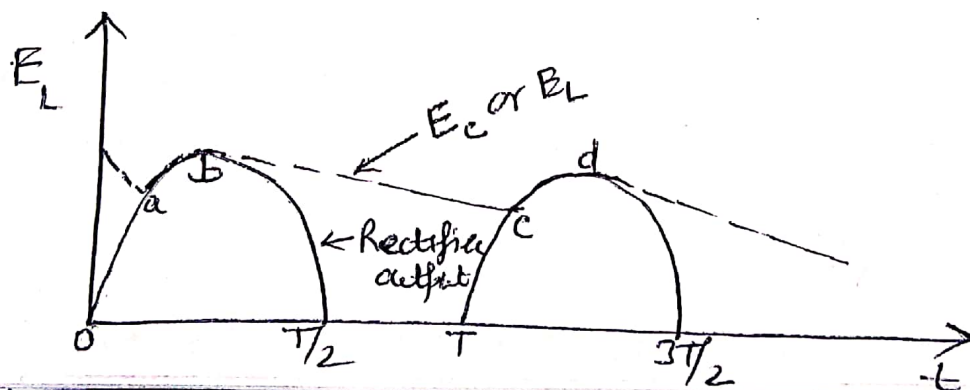 E_L
E_c or E_L
b
d
a
c
← Rectifier
output
0 T/2 T 3T/2 t